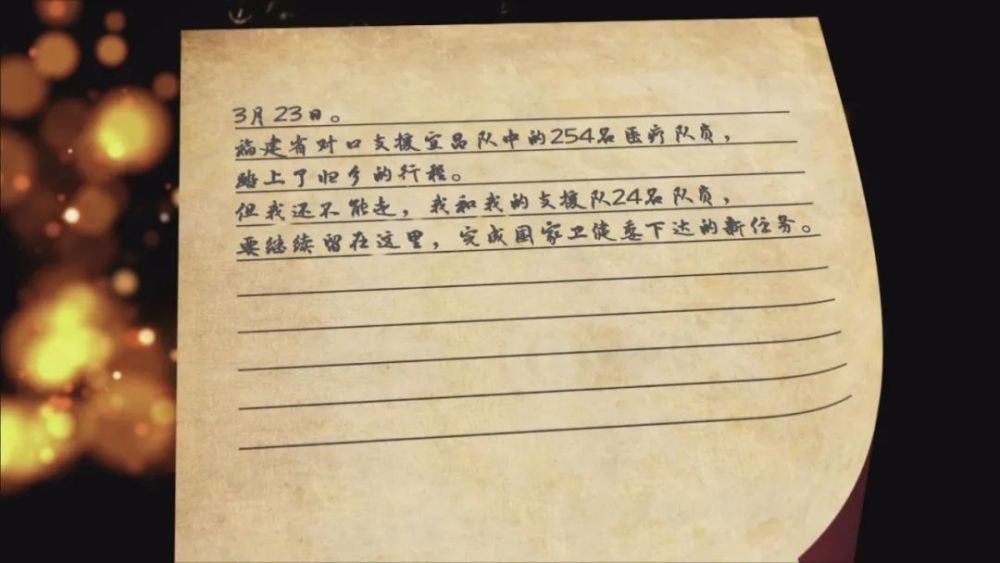 3月23日。
福建省对口支援宜昌队中的254名医疗队员，
踏上了归乡的行程。
但我还不能走，我和我的支援队24名队员，
要继续留在这里，完成国家卫健委下达的新任务。